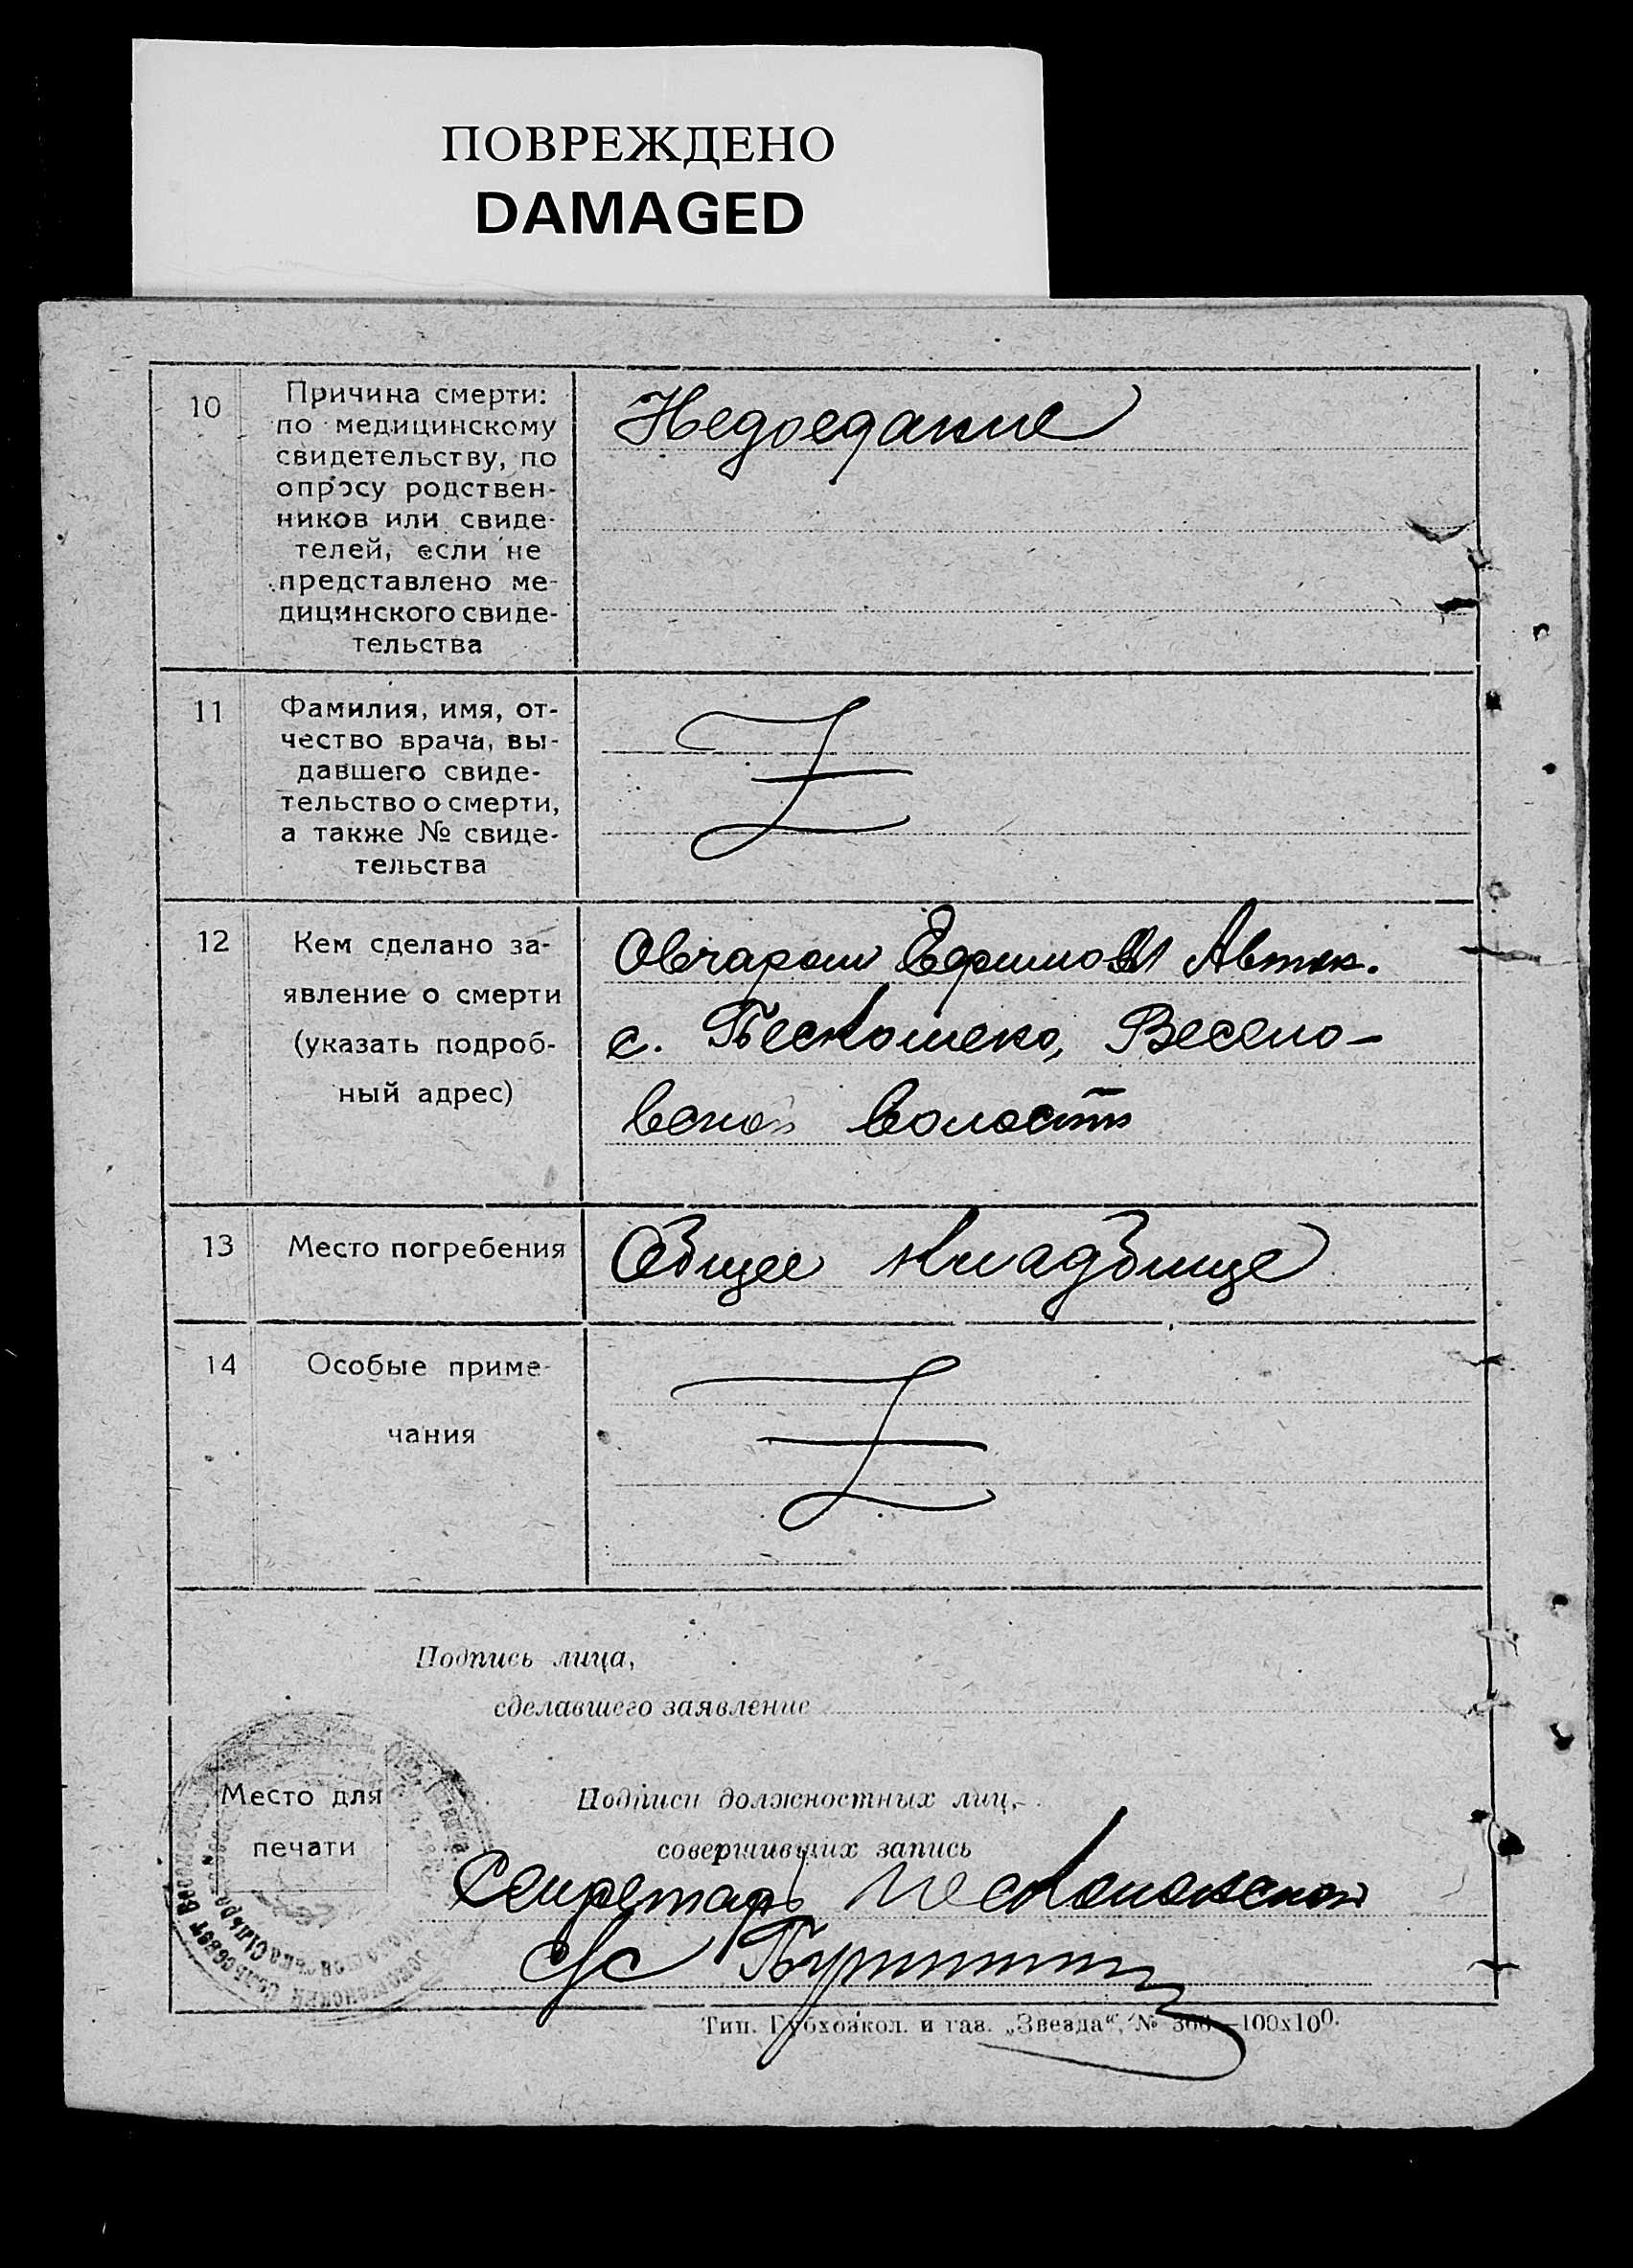 ПОВРЕЖДЕНО
DAMAGED
10
Причина смерти:
по медицинскому
свидетельству, по
опросу родствен-
ников или свиде-
телей, если не
представлено ме-
дицинского свиде-
тельства
Недоедание
11
Фамилия, имя, от-
чество врача, вы-
давшего свиде-
тельство о смерти,
а также № свиде-
тельства
Z
12
Кем сделано за-
явление о смерти
(указать подроб-
ный адрес)
с. Весело-
вской волости
13
Место погребения
Общее кладбище
14
Особые приме-
чания
Z
Подпись лица,
сделавшего заявление
Место для
печати
Подписи должностных лиц,
совершивших запись
Секретарь
с/с
Тип. Губхозкол. и газ. „Звезда“, № —100х100.